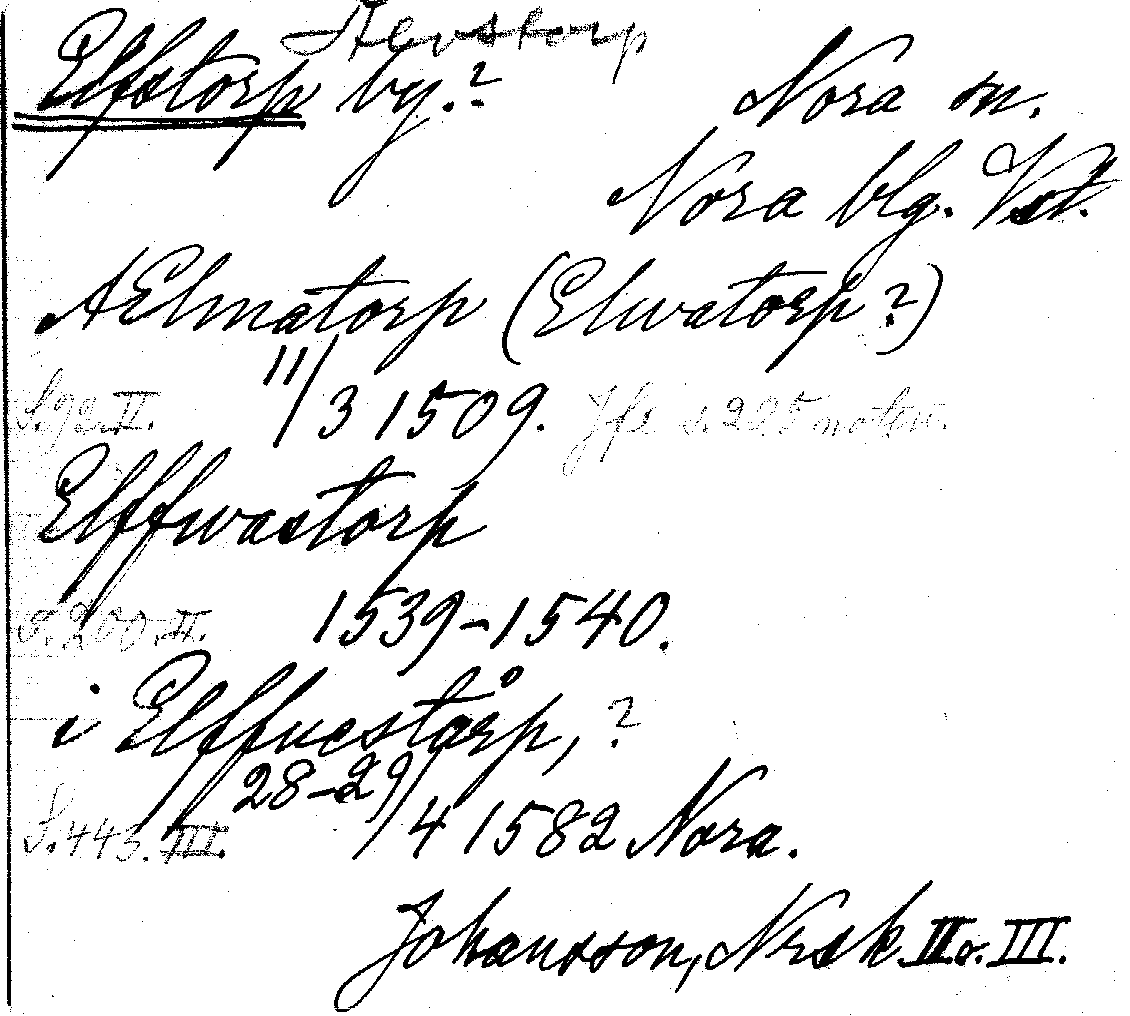 Älvstorp
Elfstorp by.? Nora sn.
Nora blg. Vst.
AElmatorp (Elwatorp?)
S. 92. II. 11/3 1509. Jfr s. 225 noten.
Elffwastorp
S. 200. II. 1539-1540.
i Elffuestårp, ?
S. 443. III. 28-29/4 1582 Nora.
Johansson, Nrsk. II o. III.